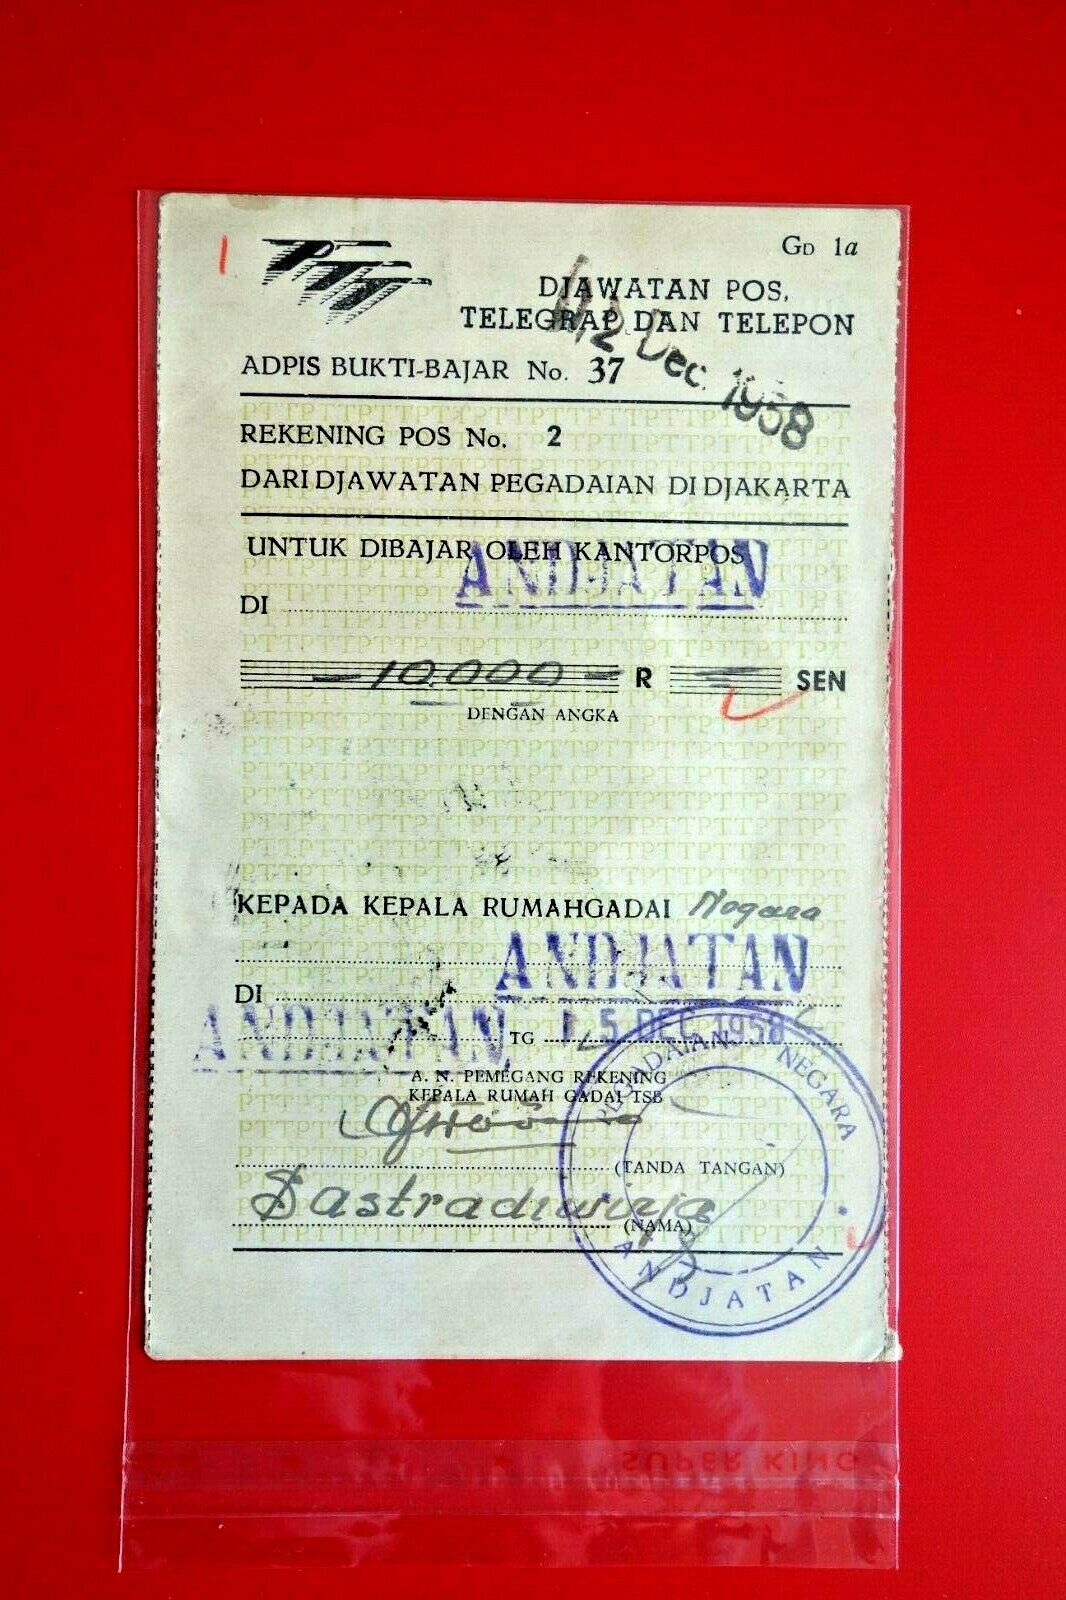 1
PTT
GD 1a
DJAWATAN POS,
TELEGRAP DAN TELEPON
12 Dec. 1958
ADPIS BUKTI-BAJAR No. 37
REKENING POS No. 2
DARI DJAWATAN PEGADAIAN DI DJAKARTA
UNTUK DIBAJAR OLEH KANTORPOS
DI ANDJATAN
— 10.000 — R SEN
DENGAN ANGKA
KEPADA KEPALA RUMAHGADAI Negara
DI ANDJATAN
ANDJATAN TG 15 DEC 1958
A. N. PEMEGANG REKENING
KEPALA RUMAH GADAI TSB
(TANDA TANGAN)
Sastradiwirja
(NAMA)
PEGADAIAN NEGARA
* ANDJATAN *
SUPER KING